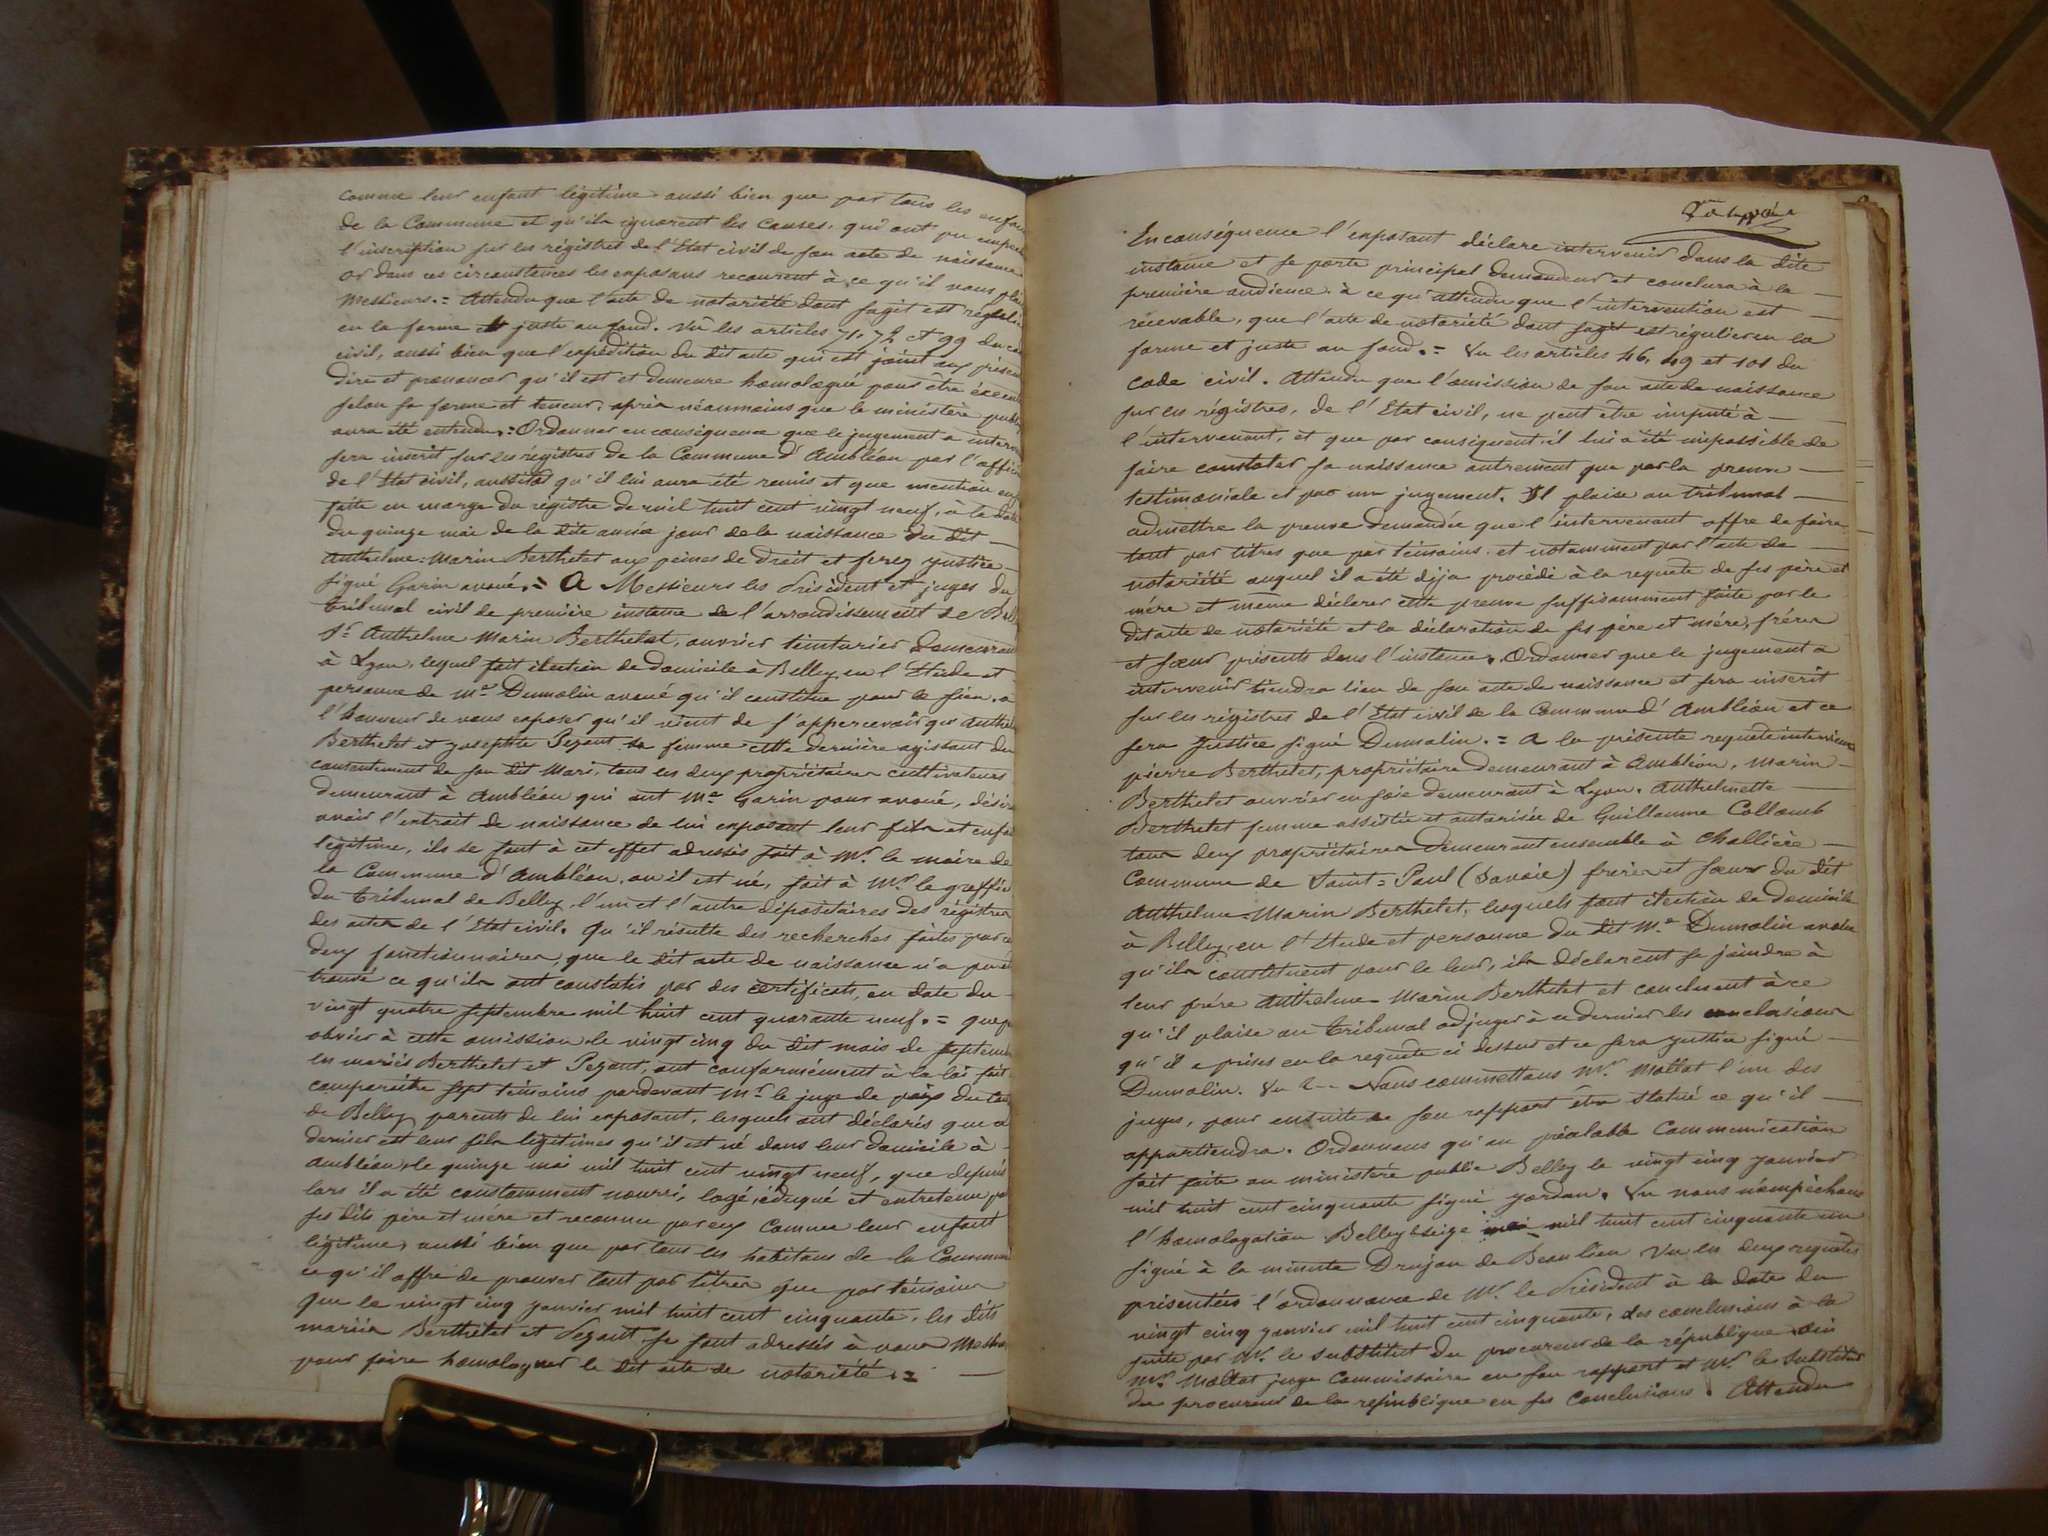 comme leur enfant légitime aussi bien que par tous les
de la Commune et qu'ils ignorent les causes, qui ont pu
l'inscription sur les régistres de l'Etat civil de son acte de naissance
or dans ces circonstances les exposans recourent à ce qu'il vous
Messieurs. = Attendu que l'acte de notariété dont s'agit est
en la forme et juste au fond. Vû les articles 71. 72 et 99 du
civil, aussi bien que l'expédition du dit acte qui est joint aux
dire et prononcer qu'il est et demeure homologué pour être
selon sa forme et teneur, après néanmoins que le ministère
aura été entendu. = Ordonner en conséquence que le jugement a
sera inscrit sur les registres de la Commune d'Ambléon par l'
de l'Etat civil, aussitôt qu'il lui aura été remis et que mention
faite en marge du régistre de mil huit cent vingt neuf, à la date
du quinze mai de la dite année jour de la naissance du dit
Anthelme-Marin Berthelet aux peines de droit et ferez justice
signé Garin avoué. = A Messieurs les Président et juges du
tribunal civil de première instance de l'arrondissement de
Sr. Anthelme Marin Berthelet, ouvrier teinturier demeurant
à Lyon, lequel fait élection de domicile à Belley en l'Etude et
personne de Me Dumolin avoué qu'il constitue pour le sien, a
l'honneur de vous exposer qu'il vient de s'appercevoir que
Berthelet et Josephte Pezant sa femme cette dernière agissant du
consentement de son dit Mari, tous les deux propriétaires cultivateurs
demeurant à Ambléon qui ont Me Garin pour avoué,
avoir l'extrait de naissance de lui exposant leur fils et
légitime, ils se sont à cet effet adressés soit à Mr. le maire de
la Commune d'Ambléon, où il est né, soit à Mr. le
du tribunal de Belley, l'un et l'autre dépositaires des régistres
des actes de l'Etat civil. Qu'il résulte des recherches faites par
deux fonctionnaires, que le dit acte de naissance n'a
trouvé ce qu'ils ont constatés par des certificats, en date du
vingt quatre septembre mil huit cent quarante neuf. =
obvier à cette omission le vingt cinq du dit mois de
les mariés Berthelet et Pezant, ont conformément à la loi fait
comparaitre sept témoins pardevant Mr. le juge de paix du
de Belley parents de lui exposant, lesquels ont déclarés que
dernier est leur fils légitimes qu'il est né dans leur domicile à
Ambléon, le quinze mai mil huit cent vingt neuf, que depuis
lors il a été constamment nourri, logé, éduqué et entretenu
ses dits père et mère et reconnu par eux comme leur enfant
légitime, aussi bien que par tous les habitans de la Commune
ce qu'il offre de prouver tant par titres que par témoins
que le vingt cinq janvier mil huit cent cinquante, les dits
mariés Berthelet et Pezant se sont adressés à vous
pour faire homologuer le dit acte de notariété. =
En conséquence l'exposant déclare intervenir dans la dite
instance et se porte principal demandeur et conclura à la
première audience à ce qu'attendu que l'intervention est
recevable, que l'acte de notariété dont s'agit est régulier en la
forme et juste au fond. = Vu les articles 46, 49 et 101 du
code civil. Attendu que l'omission de son acte de naissance
sur les régistres, de l'Etat civil, ne peut être imputé à
l'intervenant, et que par conséquent, il lui a été impossible de
faire constater sa naissance autrement que par la preuve
testimoniale et par un jugement. Il plaise au tribunal
admettre la preuve demandée que l'intervenant offre de faire
tant par titres que par témoins, et notamment par l'acte de
notariété auquel il a été déja procédé à la requete de ses père et
mère et même déclarer cette preuve suffisamment faite par le
dit acte de notariété et la déclaration de ses père et mère, frères
et soeur présents dans l'instance. Ordonner que le jugement a
intervenir tiendra lieu de son acte de naissance et sera inscrit
sur les régistres de l'Etat civil de la Commune d'Ambléon et ce
sera justice signé Dumolin. = A la présente requete interviennent
pierre Berthelet, propriétaire demeurant à Ambléon, Marin
Berthelet ouvrier en soie demeurant à Lyon. Anthelmette
Berthelet femme assistée et autorisée de Guillaume Collomb
tous deux propriétaires demeurant ensemble à Challière
Commune de Saint-Paul (Savoie) frères et soeur du dit
Anthelme-Marin Berthelet, lesquels font élection de domicile
à Belley, en l'Etude et personne du dit Me Dumolin avoué
qu'ils constituent pour le leur, ils déclarent se joindre à
leur frère Anthelme Marin Berthelet et concluent à ce
qu'il plaise au tribunal adjuger à ce dernier les conclusions
qu'il a prises en la requete ci dessus et ce sera justice signé
Dumolin. Vu Nous commettons Mr. Moltat l'un des
juges, pour ensuite de son rapport être statué ce qu'il
appartiendra. Ordonnons qu'au préalable Communication
soit faite au ministère public Belley le vingt cinq janvier
mil huit cent cinquante signé jordan. Vu nous n'empêchons
l'homologation Belley seize mai mil huit cent cinquante un
signé à la minute Drujon de Beaulieu Vu les deux requêtes
présentées l'ordonnance de Mr. le Président à la date du
vingt cinq janvier mil huit cent cinquante, les conclusions à la
suite par Mr. le substitut du procureur de la république ouï
Mr. Moltat juge Commissaire en son rapport et Mr. le Substitut
du procureur de la république en ses Conclusions. Attendu